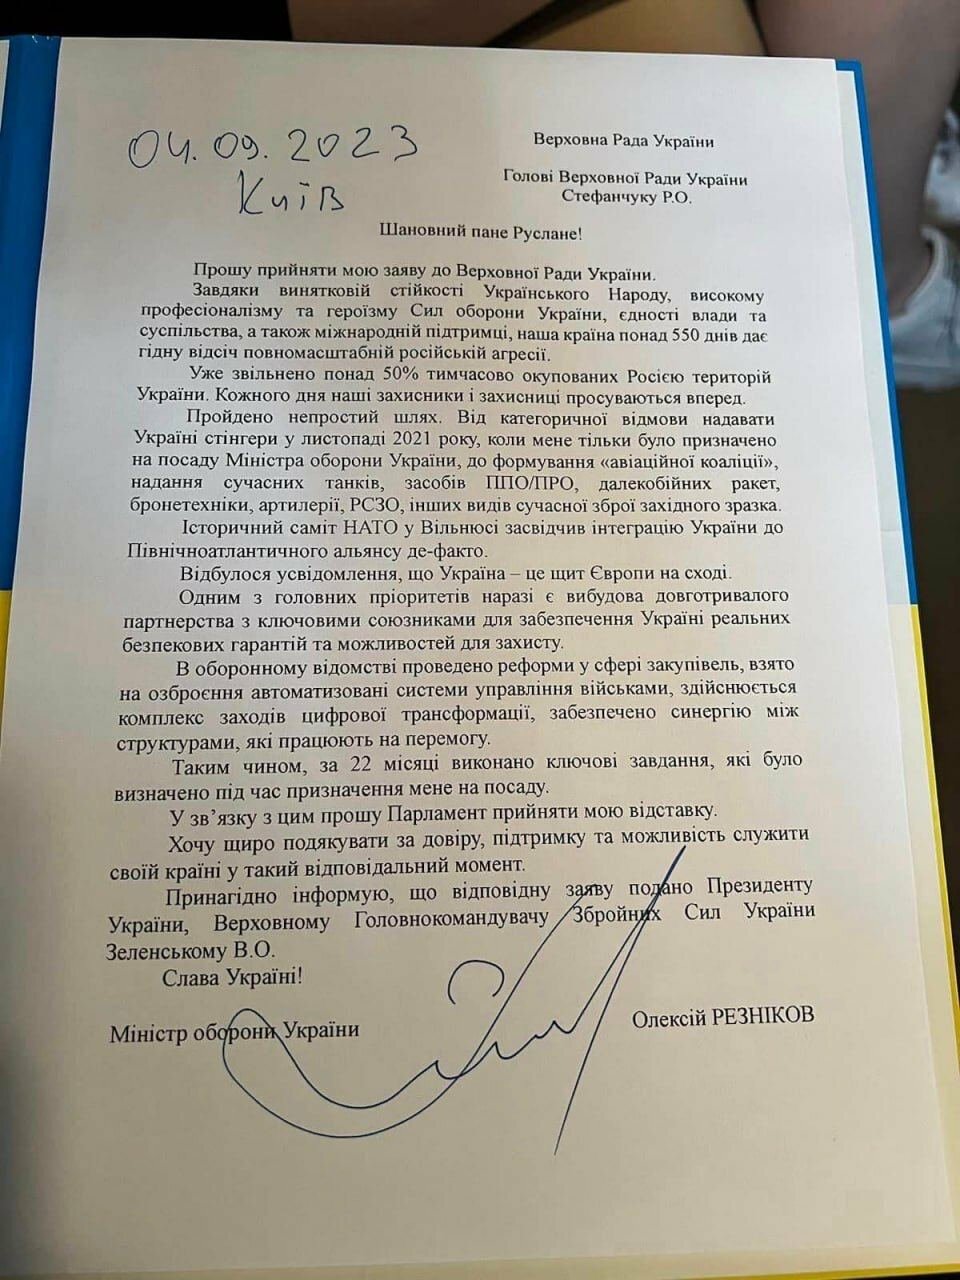 04.09.2023
Київ
Верховна Рада України
Голові Верховної Ради України
Стефанчуку Р.О.
Шановний пане Руслане!
Прошу прийняти мою заяву до Верховної Ради України.
Завдяки винятковій стійкості Українського Народу, високому
професіоналізму та героїзму Сил оборони України, єдності влади та
суспільства, а також міжнародній підтримці, наша країна понад 550 днів дає
гідну відсіч повномасштабній російській агресії.
Уже звільнено понад 50% тимчасово окупованих Росією територій
України. Кожного дня наші захисники і захисниці просуваються вперед.
Пройдено непростий шлях. Від категоричної відмови надавати
Україні стінгери у листопаді 2021 року, коли мене тільки було призначено
на посаду Міністра оборони України, до формування «авіаційної коаліції»,
надання сучасних танків, засобів ППО/ПРО, далекобійних ракет,
бронетехніки, артилерії, РСЗО, інших видів сучасної зброї західного зразка.
Історичний саміт НАТО у Вільнюсі засвідчив інтеграцію України до
Північноатлантичного альянсу де-факто.
Відбулося усвідомлення, що Україна – це щит Європи на сході.
Одним з головних пріоритетів наразі є вибудова довготривалого
партнерства з ключовими союзниками для забезпечення Україні реальних
безпекових гарантій та можливостей для захисту.
В оборонному відомстві проведено реформи у сфері закупівель, взято
на озброєння автоматизовані системи управління військами, здійснюється
комплекс заходів цифрової трансформації, забезпечено синергію між
структурами, які працюють на перемогу.
Таким чином, за 22 місяці виконано ключові завдання, які було
визначено під час призначення мене на посаду.
У зв’язку з цим прошу Парламент прийняти мою відставку.
Хочу щиро подякувати за довіру, підтримку та можливість служити
своїй країні у такий відповідальний момент.
Принагідно інформую, що відповідну заяву подано Президенту
України, Верховному Головнокомандувачу Збройних Сил України
Зеленському В.О.
Слава Україні!
Міністр оборони України
Олексій РЕЗНІКОВ